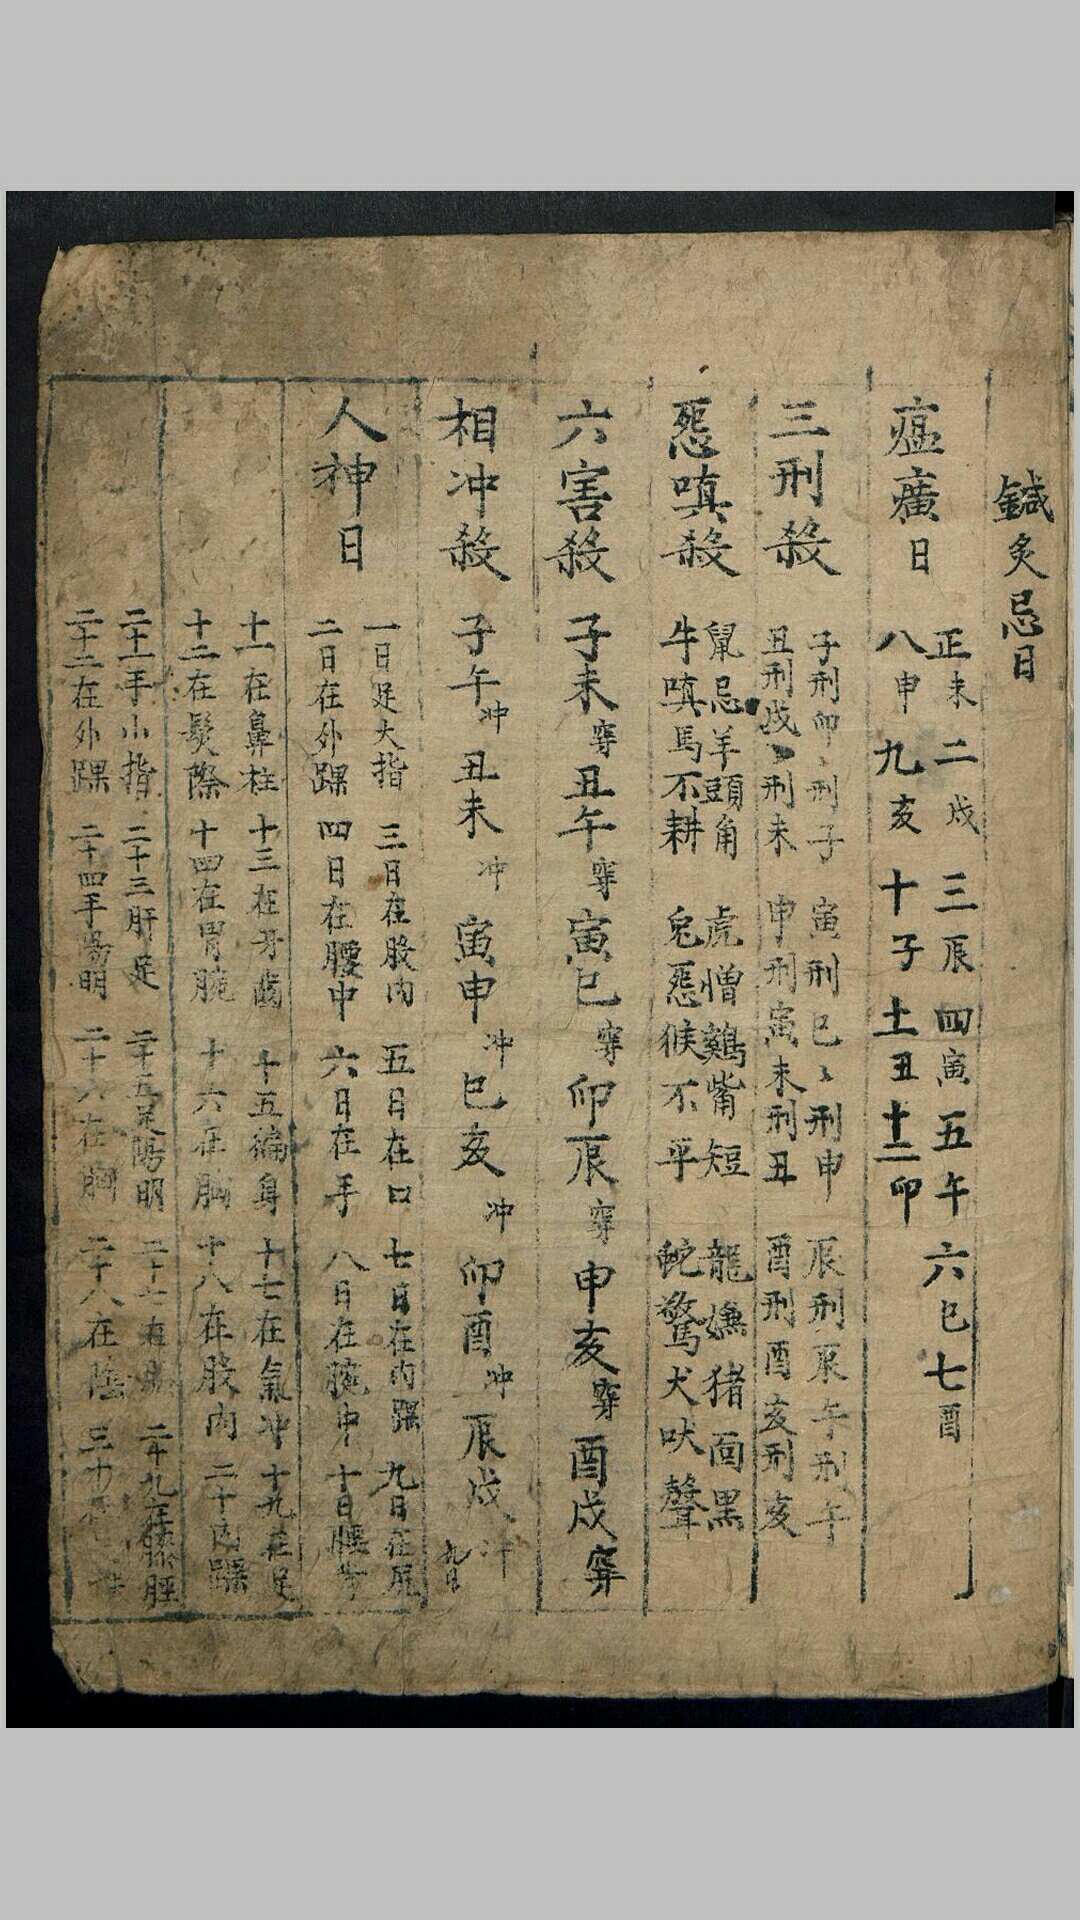 鍼灸忌日
瘟㾠日
正未 二戌 三辰 四寅 五午 六巳 七酉
八申 九亥 十子 十一丑 十二卯
三刑殺
子刑卯〻刑子 寅刑巳〻刑申 辰刑辰午刑午
丑刑戌〻刑未 申刑寅未刑丑 酉刑酉亥刑亥
怨嗔殺
鼠忌羊頭角 虎憎鷄嘴短 龍嫌猪面黑
牛嗔馬不耕 兔怨猴不平 蛇驚犬吠聲
六害殺
子未穿 丑午穿 寅巳穿 卯辰穿 申亥穿 酉戌穿
相冲殺
子午冲 丑未冲 寅申冲 巳亥冲 卯酉冲 辰戌冲
人神日
一日足大指 三日在股内 五日在口 七日在内踝 九日在尻
二日在外踝 四日在腰中 六日在手 八日在腕中 十日腰背
十一在鼻柱 十三在牙齒 十五徧身 十七在氣冲 十九在足
十二在髮際 十四在胃腕 十六在胸 十八在股内 二十内踝
二十一手小指 二十三肝足 二十五足陽明 二十七在 二十九在膝脛
二十二在外踝 二十四手陽明 二十六在胸 二十八在陰 三十